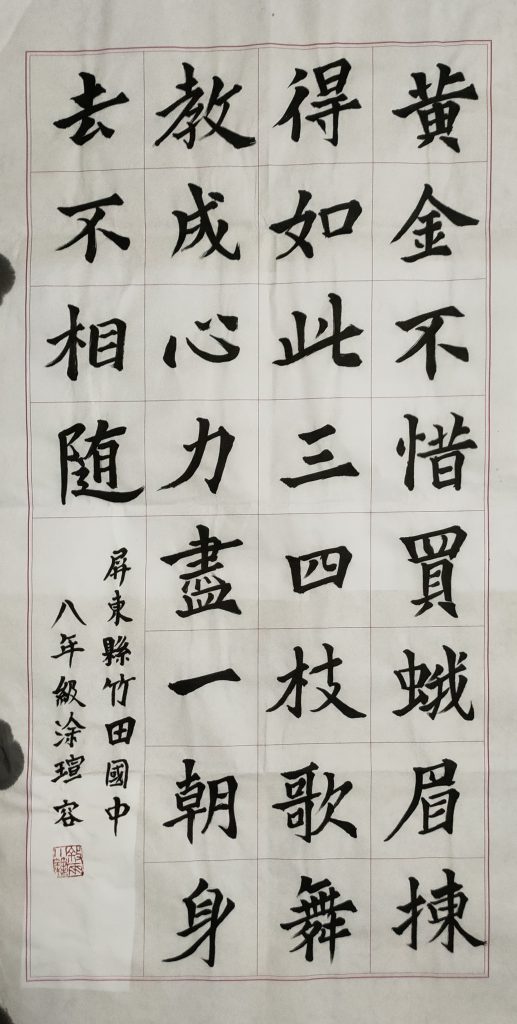 黃金不惜買蛾眉揀
得如此三四枝歌舞
教成心力盡一朝身
去不相随
屏東縣竹田國中
八年級涂瑄容